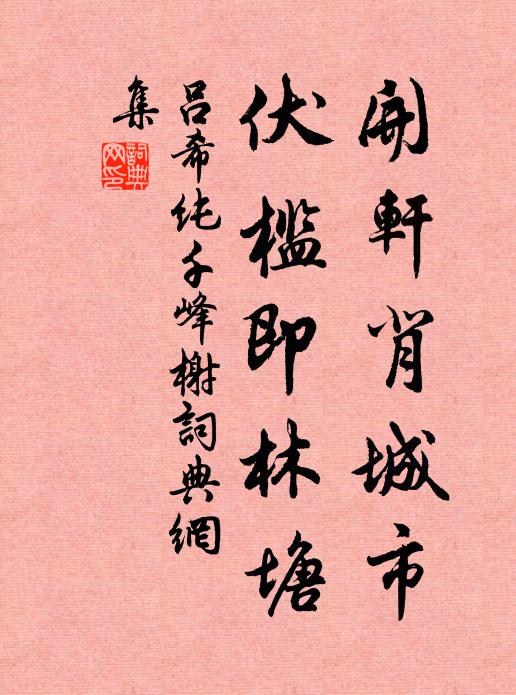 開軒背城市
伏檻即林塘
呂希純千峰榭詞典網
集
詞典
网印